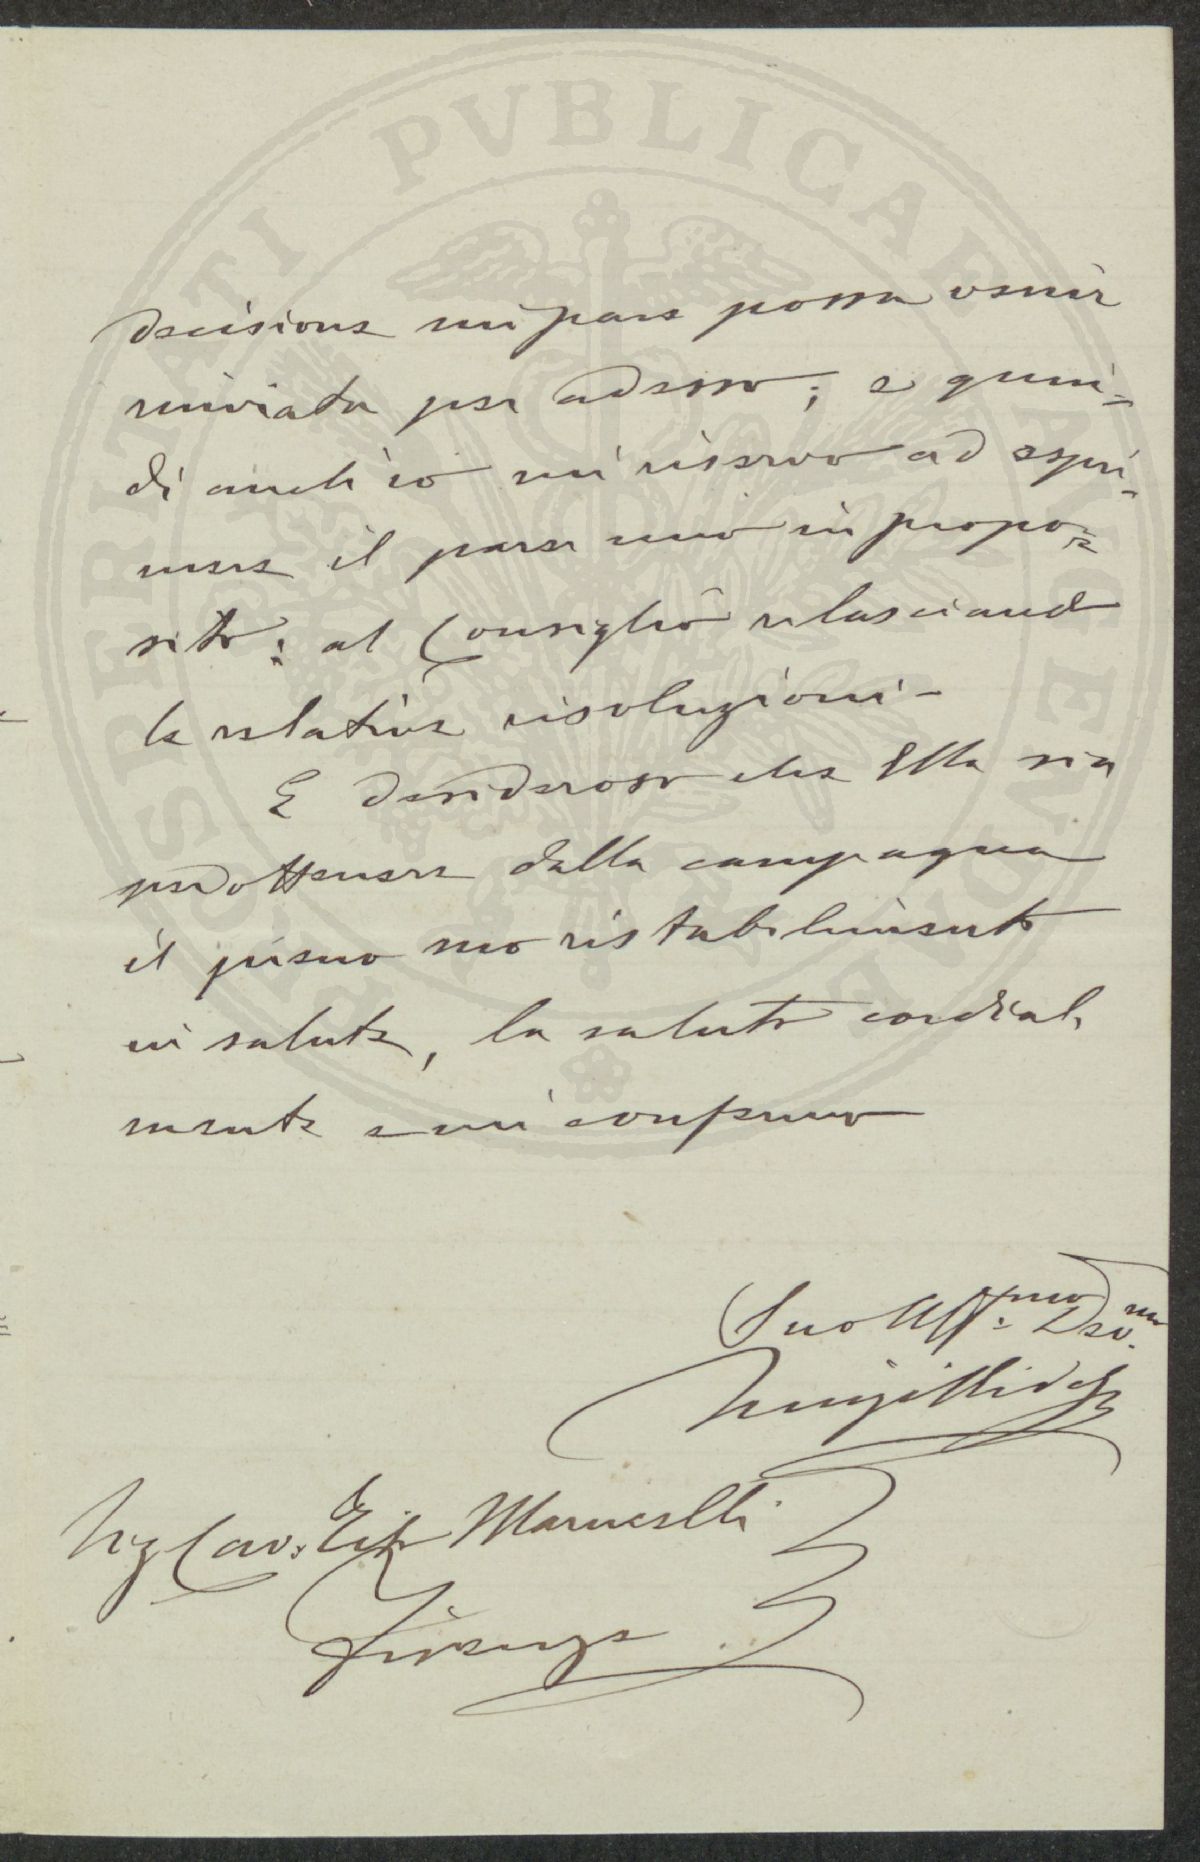 PROSPERITATI PVBLICAE AVGENDAE
decisione mi pare possa venir
rinviata per adesso; e quin=
di anch'io mi riservo ad espri=
mere il parer mio in propo=
sito: al Consiglio rilasciando
le relative risoluzioni -
E desideroso che Ella sia
per ottenere dalla campagna
il pieno suo ristabilimento
in salute, la saluto cordial,
mente e mi confermo
Suo Aff.mo Dev.mo
Luigi Ridolfi
Sig Cav. Marucelli
Firenze